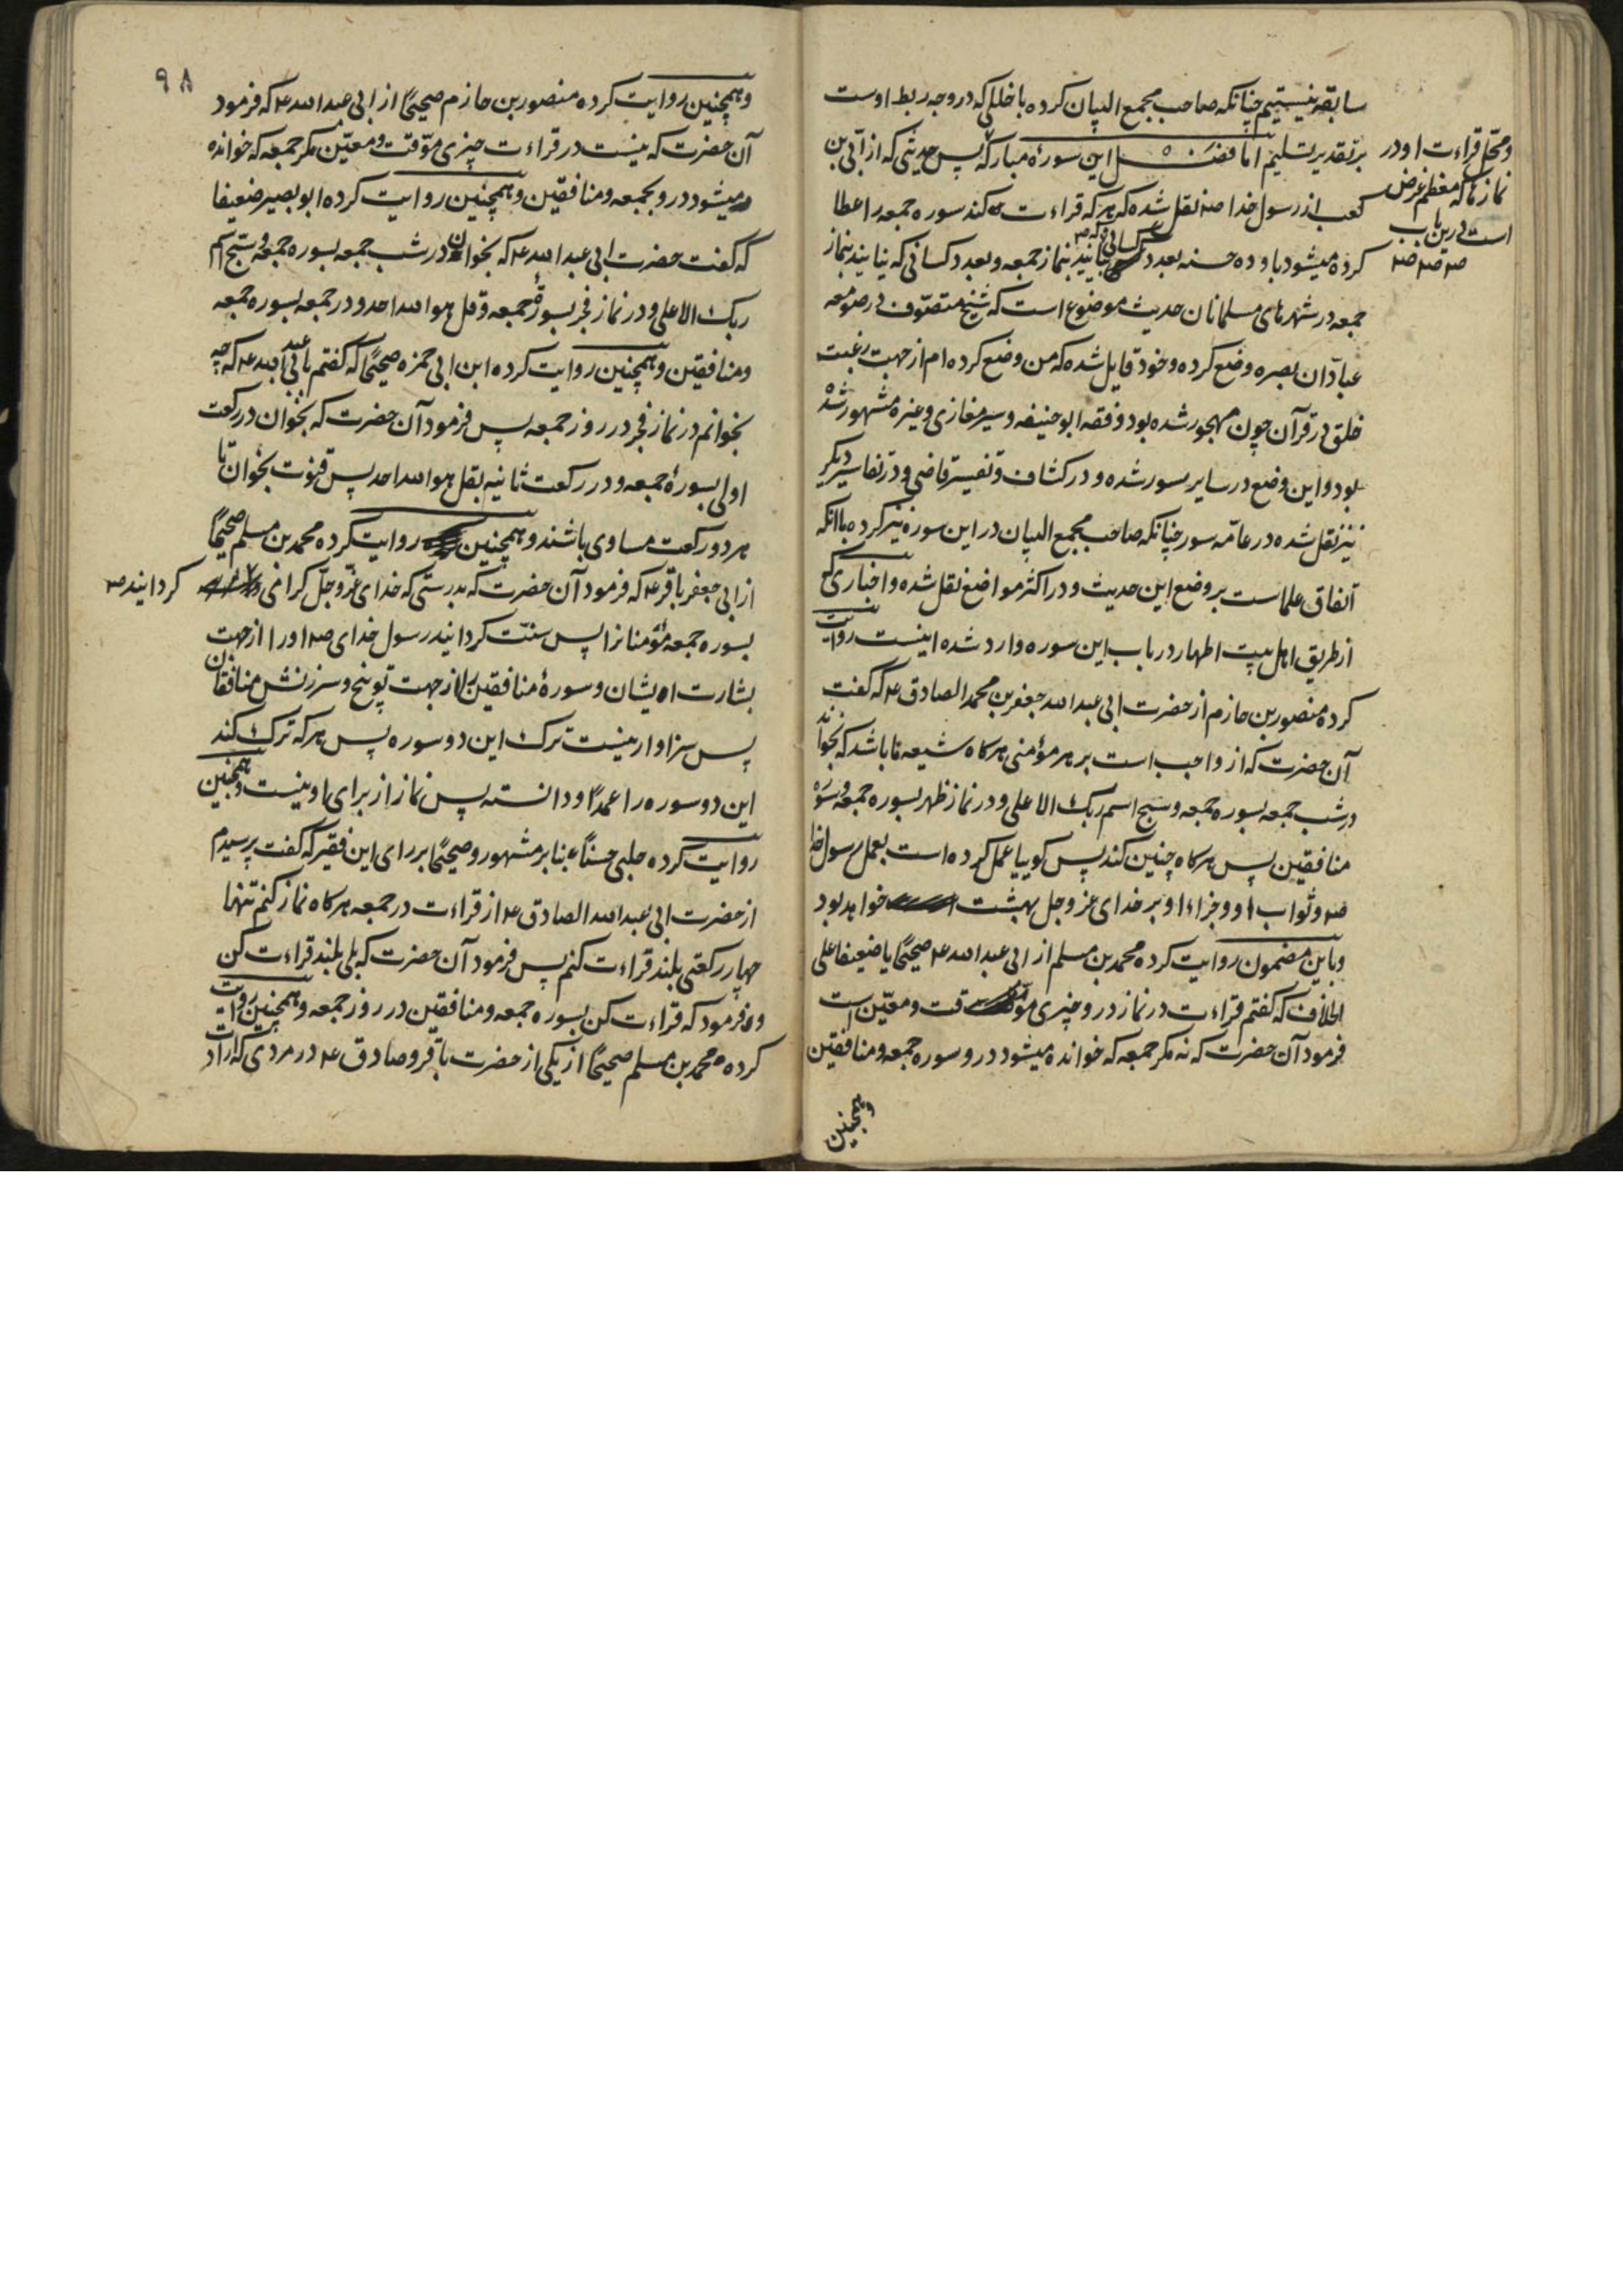 سابقه نیستیم چنانکه صاحب مجمع البیان کرده با خللی که در وجه ربط اوست
بر تقدیر تسلیم اما فضل این سورهٔ مبارکه پس حدیثی که از ابی بن
کعب از رسول خدا صه نقل شده که هر که قراءت کند سوره جمعه را عطا
کرده میشود باو ده حسنه بعدد کسانی که بیایند بنماز جمعه و بعدد کسانی که نیایند بنماز
جمعه در شهرهای مسلمانان حدیث موضوع است که شیخ متصوف در صومعه
عبادان بصره وضع کرده و خود قایل شده که من وضع کرده ام از جهت رغبت
خلق در قرآن چون مهجور شده بود و فقه ابو حنیفه و سیر مغازی و غیره مشهور شده
بود و این وضع در سایر سور شده و در کشاف و تفسیر قاضی و در تفاسیر دیگر
نیز نقل شده در عامه سور چنانکه صاحب مجمع البیان در این سوره نیز کرده با آنکه
اتفاق علماست بر وضع این حدیث و در اکثر مواضع نقل شده و اخباری که
از طریق اهل بیت اطهار در باب این سوره وارد شده اینست روایت
کرده منصور بن حازم از حضرت ابی عبد الله جعفر بن محمد الصادق ع که گفت
آن حضرت که از واجب است بر هر مؤمنی هرکاه شیعه ما باشد که بخواند
در شب جمعه بسوره جمعه و سبح اسم ربک الاعلی و در نماز ظهر بسوره جمعه و سوره
منافقین پس هرکاه چنین کند پس کوییا عمل کرده است بعمل رسول خدا
صه و ثواب او و جزاء او بر خدای عز و جل بهشت خواهد بود
و باین مضمون روایت کرده محمد بن مسلم از ابی عبد الله ع صحیحًا یا ضعیفا علی
الخلاف که گفتم قراءت در نماز درو چیزی موقت و معین است
فرمود آن حضرت که نه مکر جمعه که خوانده میشود درو سوره جمعه و منافقین
وهمچنین
و محل قراءت او در
نمازها که معظم غرض
است درین باب
صه صه صه
۹۸
وهمچنین روایت کرده منصور بن حازم صحیحًا از ابی عبد الله ع که فرمود
آن حضرت که نیست در قراءت چیزی موقت و معین مکر جمعه که خوانده
میشود درو بجمعه و منافقین وهمچنین روایت کرده ابو بصیر ضعیفا
که گفت حضرت ابی عبد الله ع که بخوان در شب جمعه بسوره جمعه و سبح اسم
ربک الاعلی و در نماز فجر بسوره جمعه و قل هو الله احد و در جمعه بسوره جمعه
و منافقین وهمچنین روایت کرده ابن ابی حمزه صحیحًا که گفتم بابی عبد الله ع که چه
بخوانم در نماز فجر در روز جمعه پس فرمود آن حضرت که بخوان در رکعت
اولی بسورهٔ جمعه و در رکعت ثانیه بقل هو الله احد پس قنوت بخوان تا
هر دو رکعت مساوی باشند وهمچنین روایت کرده محمد بن مسلم صحیحًا
از ابی جعفر باقر ع که فرمود آن حضرت که بدرستی که خدای عز و جل کرامی کردانید صه
بسوره جمعه مؤمنانرا پس سنت کردانید رسول خدای صه او را از جهت
بشارت ایشان و سورهٔ منافقین را از جهت توبیخ و سرزنش منافقان
پس سزاوار نیست ترک این دو سوره پس هرکه ترک کند
این دو سوره را عمدًا و دانسته پس نماز از برای او نیست وهمچنین
روایت کرده حلبی حسنًا بنابر مشهور و صحیحًا بر رای این فقیر که گفت پرسیدم
از حضرت ابی عبد الله الصادق ع از قراءت در جمعه هرکاه نماز کنم تنها
چهار رکعتی بلند قراءت کنم پس فرمود آن حضرت که بلی بلند قراءت کن
و فرمود که قراءت کن بسوره جمعه و منافقین در روز جمعه وهمچنین روایت
کرده محمد بن مسلم صحیحًا از یکی از حضرت باقر و صادق ع در مردی که